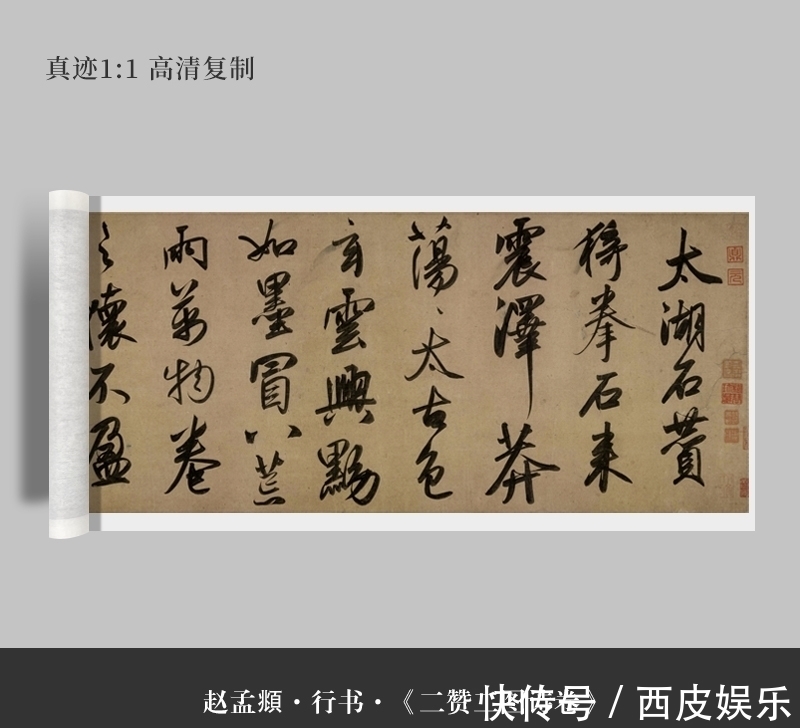 真迹1:1 高清复制
太湖石贊
猗拳石來
震澤莽
蕩、太古色
玄雲興
如墨冒八荒
雨萬物卷
之懷不盈
赵孟頫·行书·《二赞二图诗卷》
快传号 / 西皮娱乐